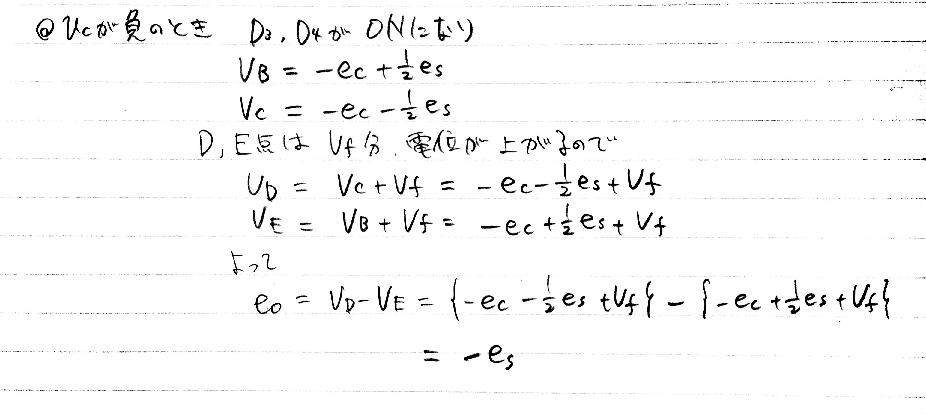 @ Vcが負のとき D3, D4が ONになり
VB = -ec + 1/2 es
Vc = -ec - 1/2 es
D, E点は Vf分、電位が上がるので
VD = Vc + Vf = -ec - 1/2 es + Vf
VE = VB + Vf = -ec + 1/2 es + Vf
よって
eo = VD - VE = {-ec - 1/2 es + Vf} - {-ec + 1/2 es + Vf}
= -es